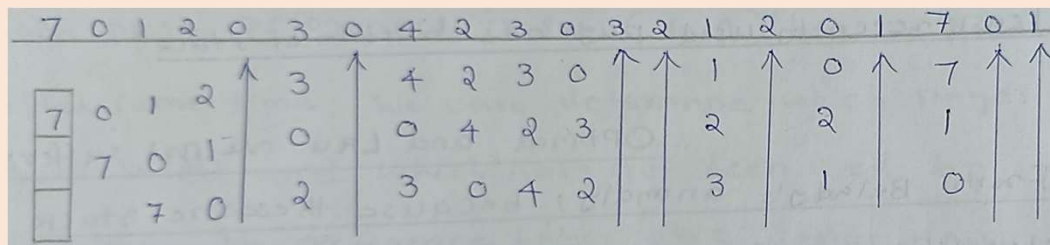 7 0 1 2 0 3 0 4 2 3 0 3 2 1 2 0 1 7 0 1
7 0 1 2 ↑ 3 ↑ 4 2 3 0 ↑ ↑ 1 ↑ 0 ↑ 7 ↑ ↑
7 0 1 0 0 4 2 3 2 2 1
7 0 2 3 0 4 2 3 1 0